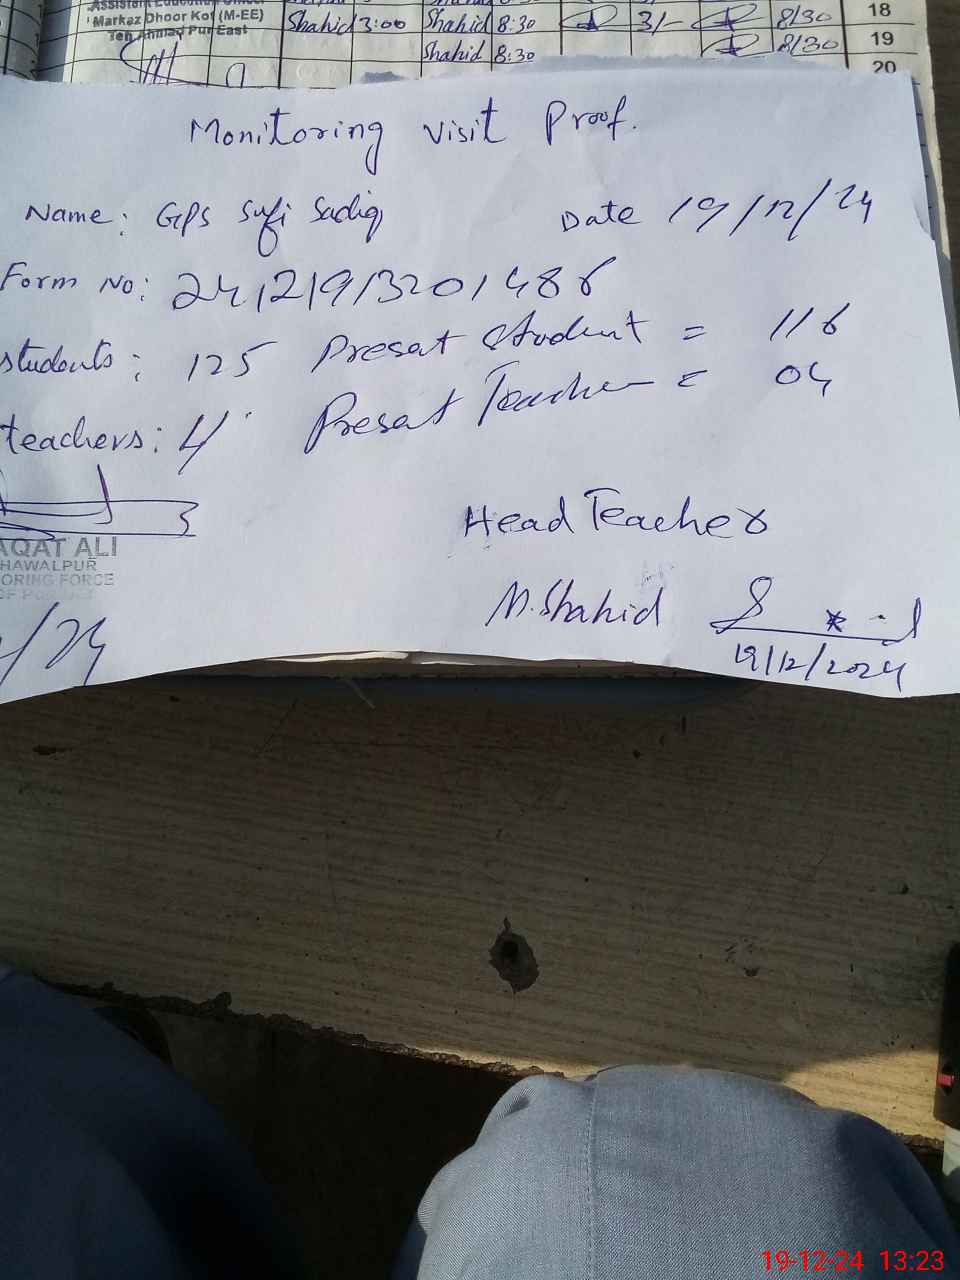 Assistant Education Officer
Markaz Dhoor Kot (M-EE)
Teh Ahmad Pur East
Shahid 3:00 Shahid 8:30 3/- 8/30 18
Shahid 8:30 8/30 19
20
Monitoring visit Proof.
Name: GPS Sufi Sadiq Date 19/12/24
Form No: 24121913201486
students: 125 Presat student = 116
teachers: 4 Presat Teacher = 04
AQAT ALI
HAWALPUR
ORING FORCE
/24
Head Teacher
M.Shahid
19/12/2024
19-12-24 13:23